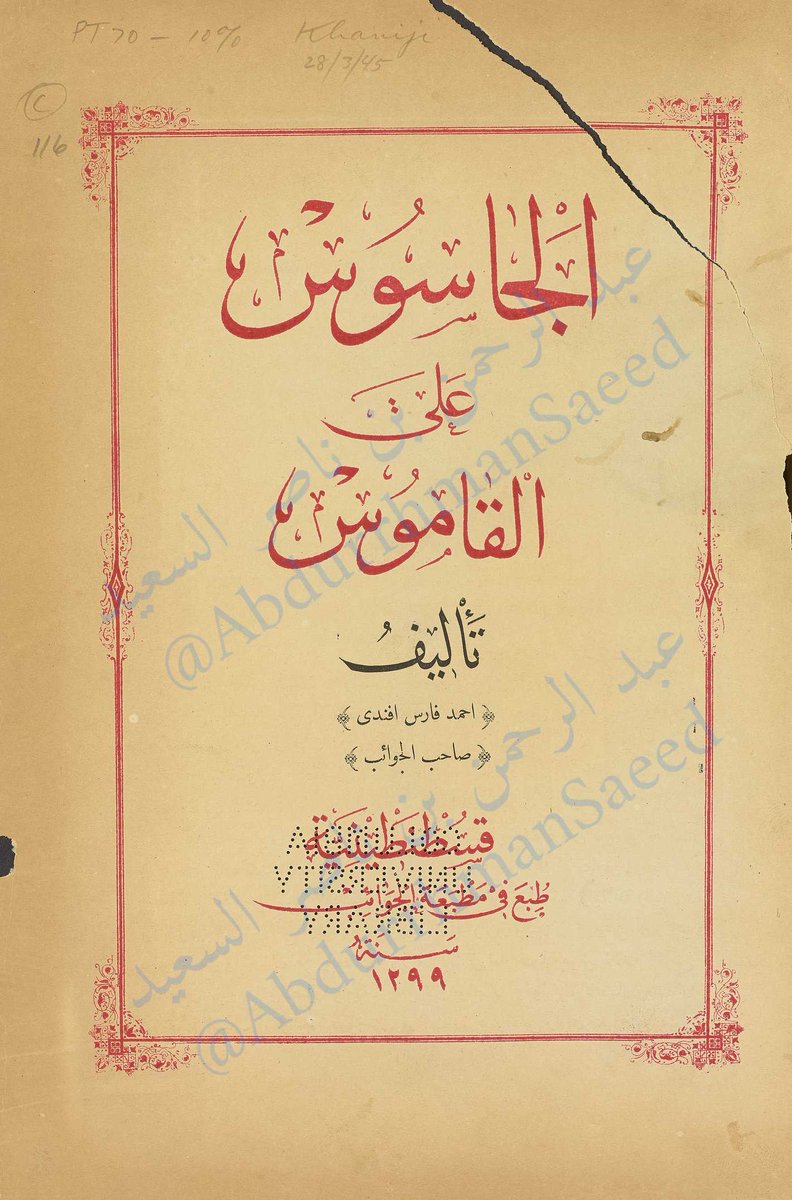 PT 70 - 10% Khaniji
28/3/45
C
116
اَلْجَاسُوسْ
عَلَى
اَلْقَامُوسْ
تَأْلِيفُ
﴿ احمد فارس افندى ﴾
﴿ صاحب الجوائب ﴾
قُسْطَنْطِينِيَّة
طُبِعَ فِى مَطْبَعَةِ الْجَوَائِبِ
سَنَةُ
١٢٩٩
عبد الرحمن بن ناصر السعيد
@AbdurrhmanSaeed
عبد الرحمن بن ناصر السعيد
@AbdurrhmanSaeed